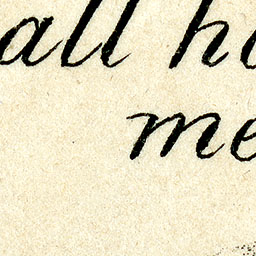 all h
me